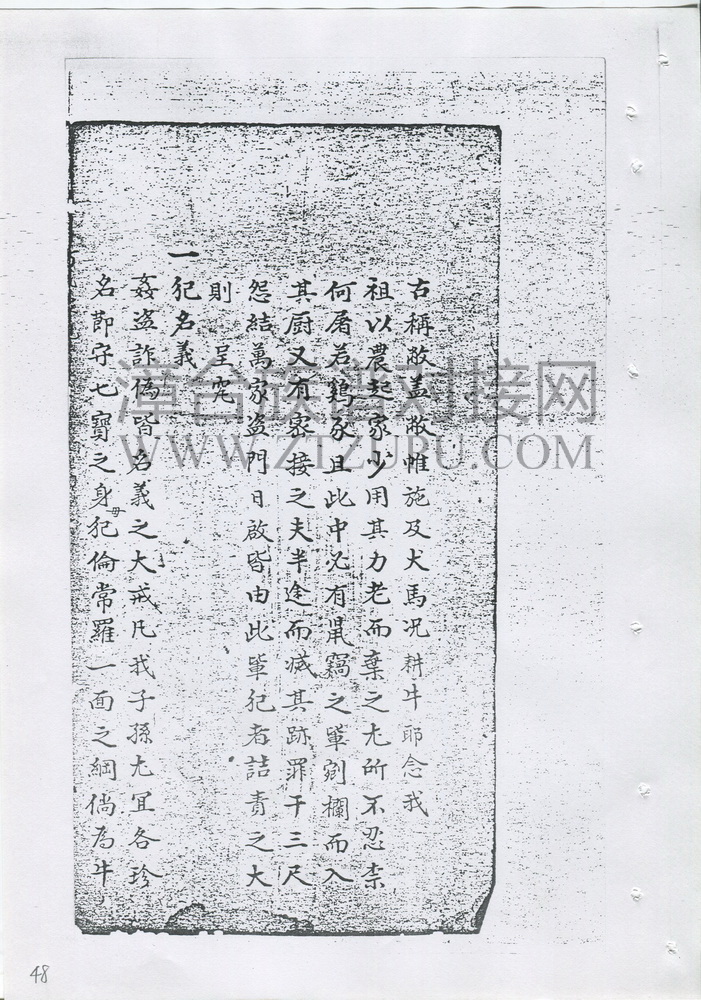 古稱敝蓋敝帷施及犬馬况耕牛耶念我
祖以農起家少用其力老而棄之尤所不忍柰
何屠若鷄豕且此中必有鼠竊之軰剜欄而入
其厨又有家接之夫半途而滅其跡罪干三尺
怨結萬家盗門日啟皆由此軰犯者詰責之大
則呈究
一犯名義
姦盗詐偽皆名義之大戒凡我子孫尤宜各珍
名節守七寶之身毋犯倫常羅一面之綱倘為牛
漳台族谱对接网
WWW.ZTZUPU.COM
48